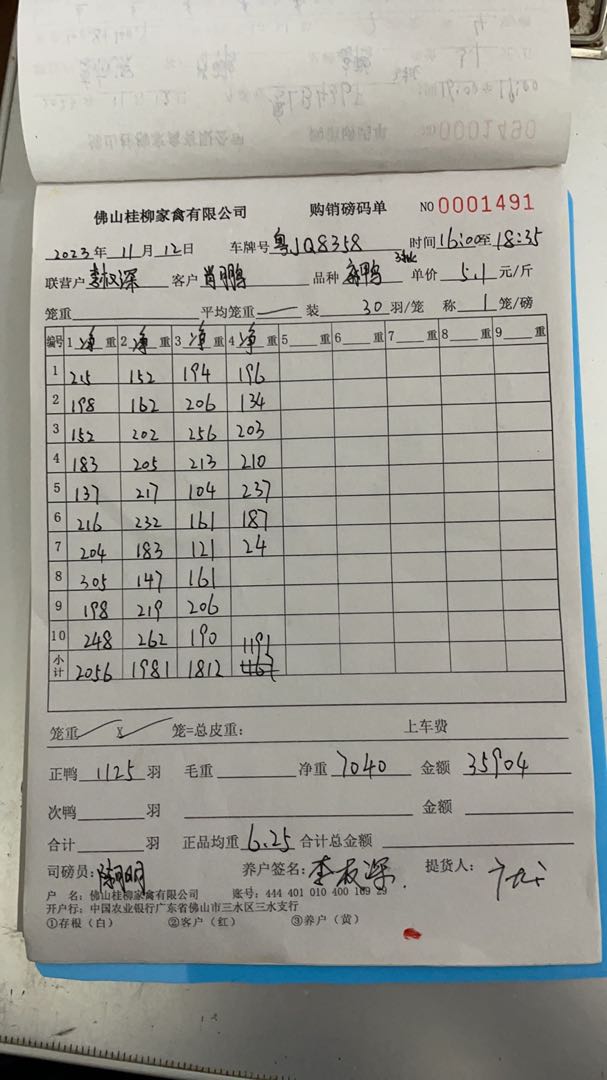 0001490
佛山桂柳家禽有限公司 购销磅码单 NO 0001491
2023年 11月 12日 车牌号 粤JQ8358 时间 16:00至 18:35
联营户 李叔深 客户 肖鹏 品种 鸭 单价 5.1 元/斤
笼重 平均笼重 装 30 羽/笼 称 1 笼/磅
编号 1 净 重 2 净 重 3 净 重 4 净 重 5 重 6 重 7 重 8 重 9 重
1 215 152 194 196
2 198 162 206 134
3 152 202 256 203
4 183 205 213 210
5 137 217 104 237
6 216 232 161 187
7 204 183 121 24
8 305 147 161
9 198 219 206
10 248 262 190
小计 2056 1981 1812 1191
笼重 X 笼=总皮重: 上车费
正鸭 1125 羽 毛重 净重 7040 金额 35904
次鸭 羽 金额
合计 羽 正品均重 6.25 合计总金额
司磅员: 养户签名: 李叔深 提货人:
户 名: 佛山桂柳家禽有限公司 账号: 444 401 010 400 169 29
开户行: 中国农业银行广东省佛山市三水区三水支行
①存根(白) ②客户(红) ③养户(黄)